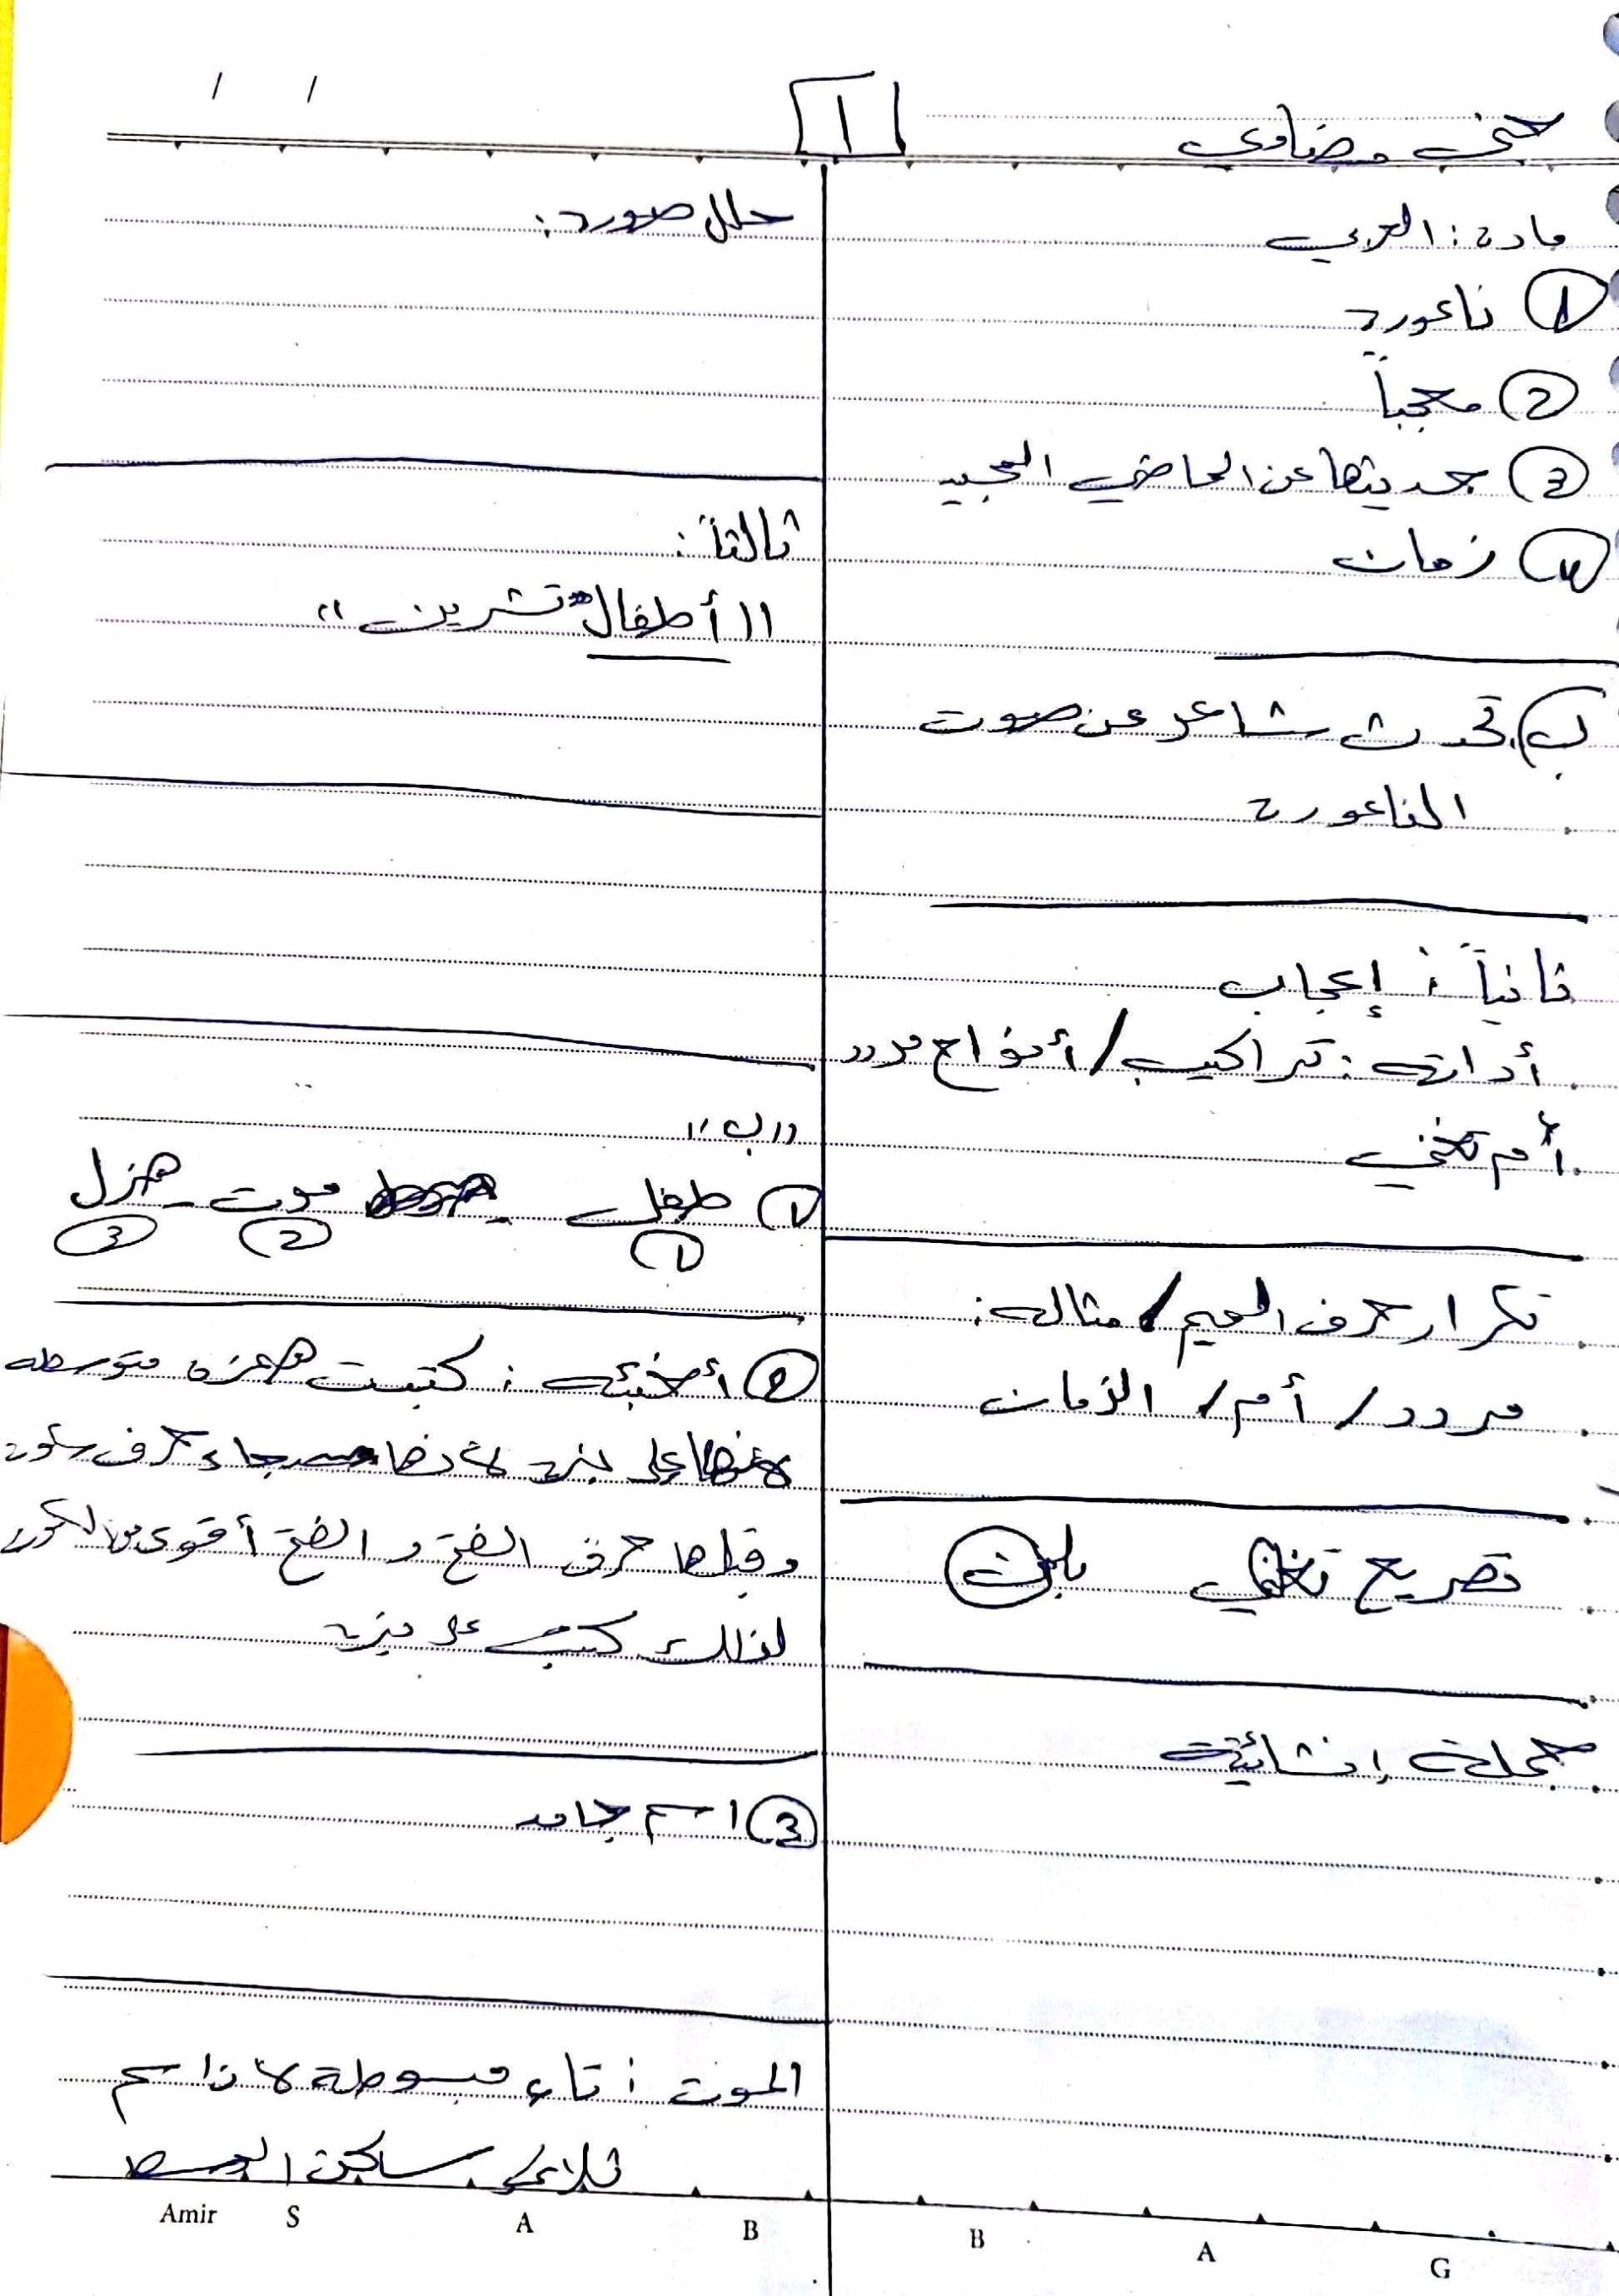 1
مادة: العربي
1 ناعورة
2 معجباً
3 بحديثها عن الماضي المجيد
4 زمان
ب) تحدث شاعر عن صوت
الناعورة
ثانياً: إعجاب
أداته: تراكيب / أمواج مردد
أم تغني
تكرار حرف الميم / مثاله:
مردد / أم / الزمان
تصريح تغني بلين
جملة إنشائية
حلل صورة:
ثالثاً:
"أطفال تشرين"
"ب"
1 طفل - موت - هزل
1 2 3
2 أخبئه: كتبت همزة متوسطة
على نبرة لأنها جاء حرف
وقبلها حرف الضم و الضم أقوى من
لذلك كتب على نبرة
3 اسم جامد
الموت: تاء مبسوطة لأنا اسم
ثلاثي ساكن الوسط
Amir S A B B A G